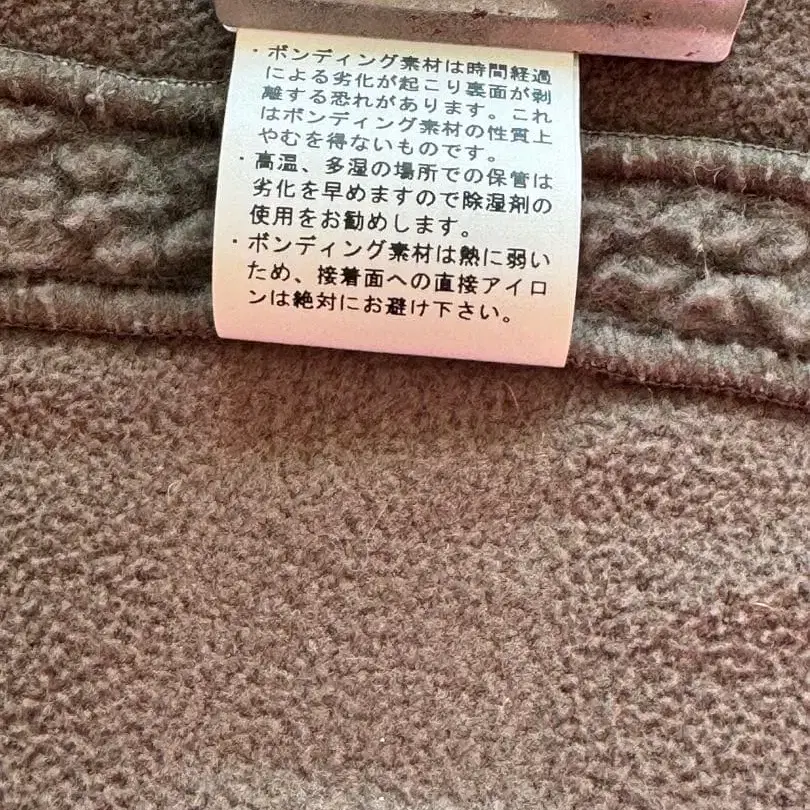 ・ボンディング素材は時間経過
による劣化が起こり裏面が剥
離する恐れがあります。これ
はボンディング素材の性質上
やむを得ないものです。
・高温、多湿の場所での保管は
劣化を早めますので除湿剤の
使用をお勧めします。
・ボンディング素材は熱に弱い
ため、接着面への直接アイロ
ンは絶対にお避け下さい。